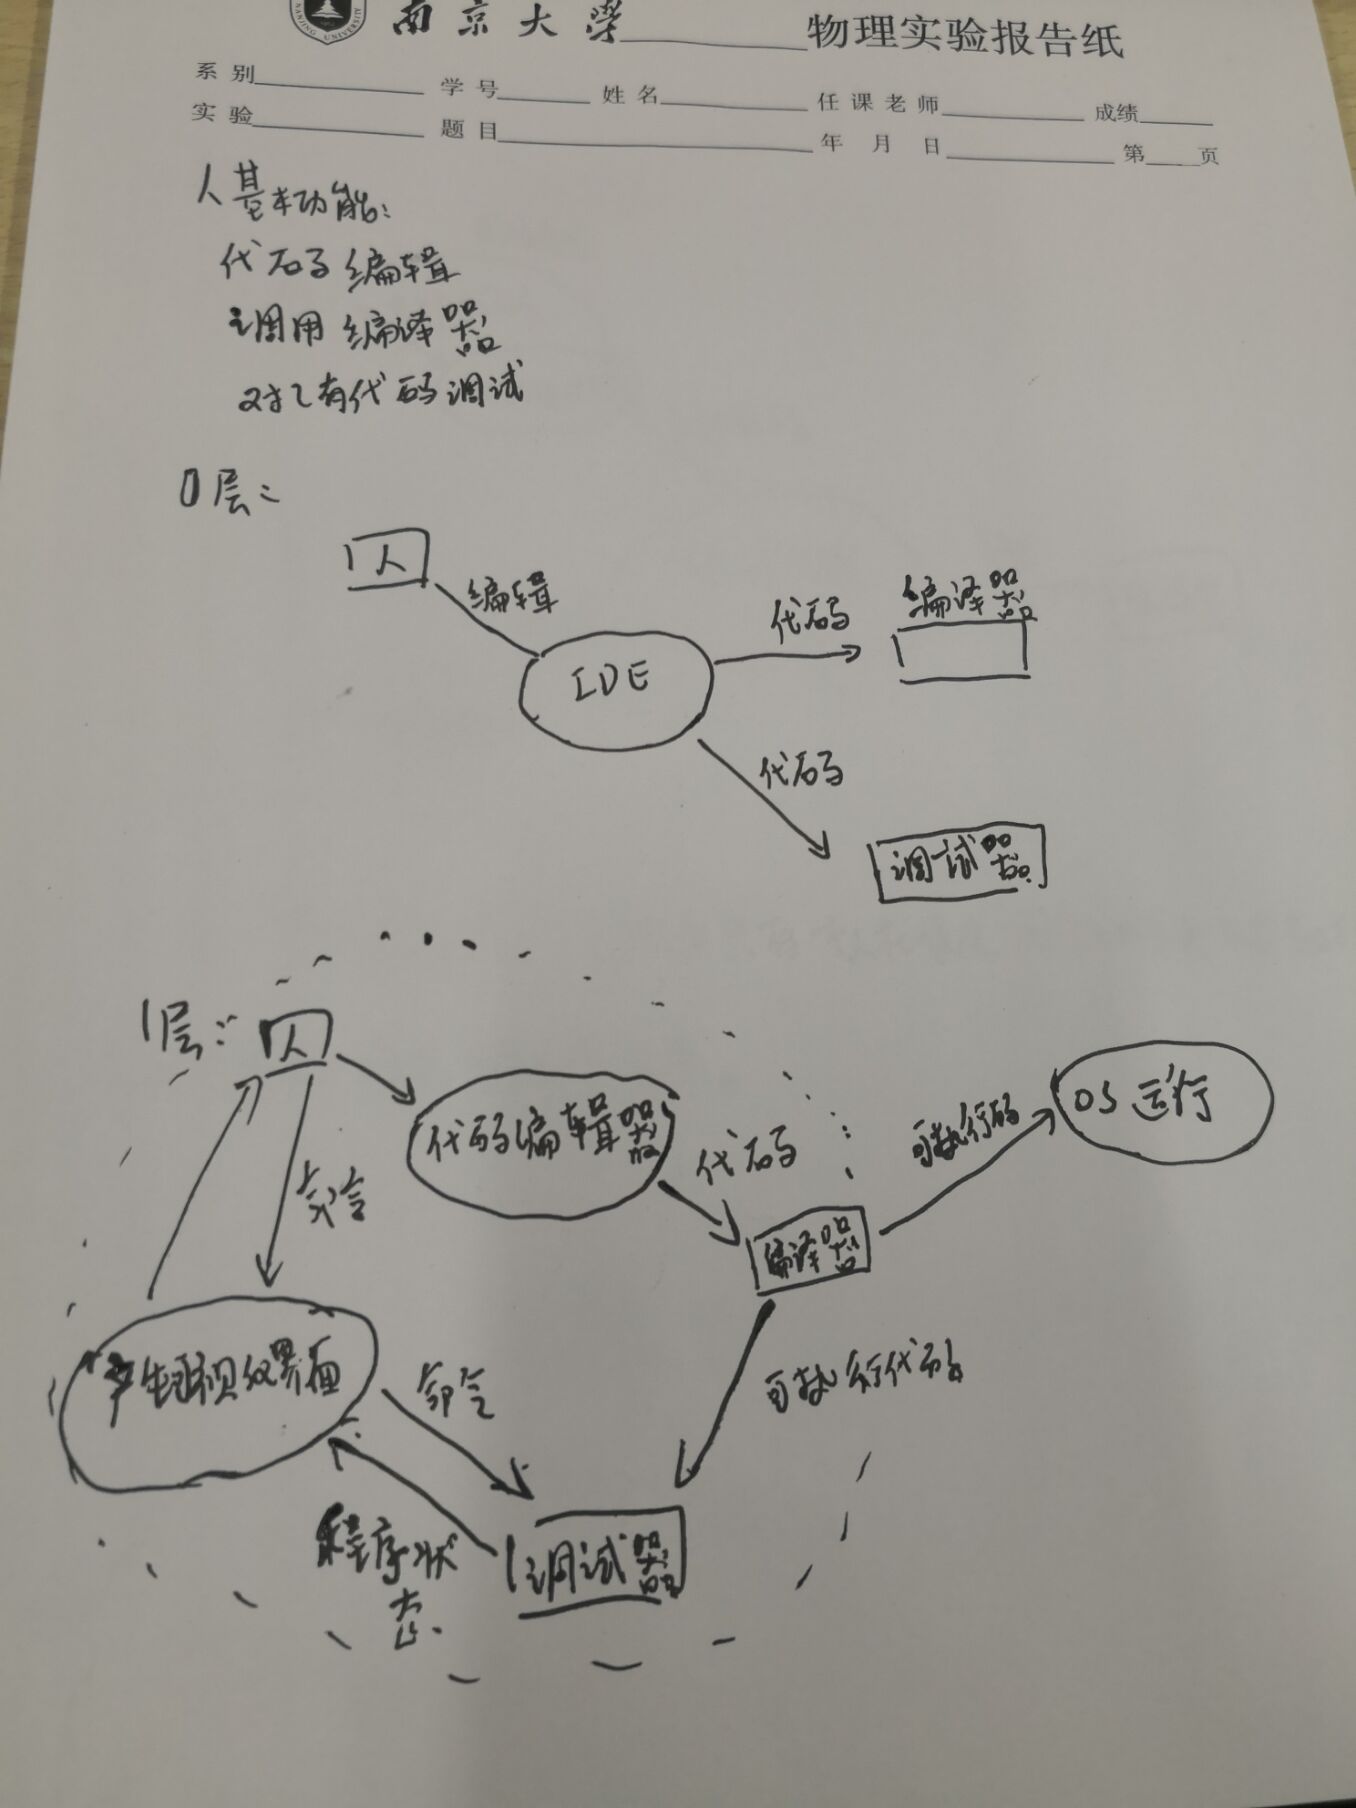 NANJING UNIVERSITY
南京大學 物理实验报告纸
系别 学号 姓名 任课老师 成绩
实验 题目 年 月 日 第 页
人基本功能:
代码编辑
调用编译器
对已有代码调试
0层:
人
编辑
IDE
代码
编译器
代码
调试器
1层:
人
代码编辑器
代码
编译器
可执行码
OS 运行
命令
产生可视化界面
命令
可执行代码
程序状
态
调试器